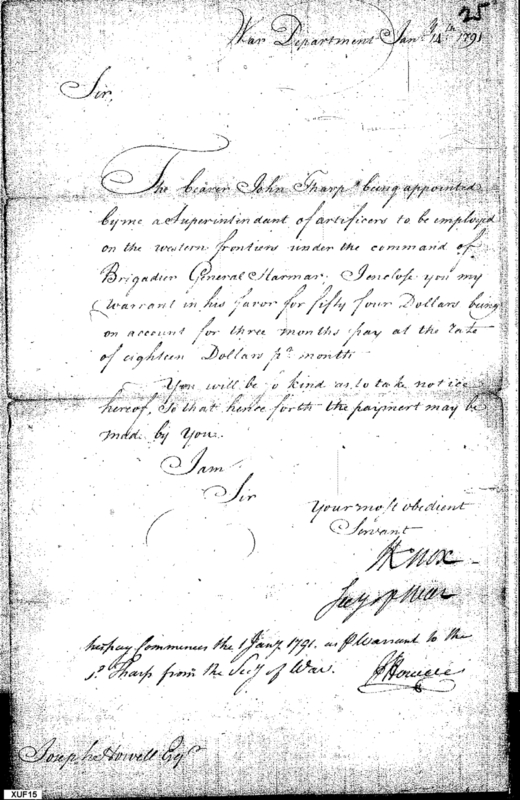 25
War Department Jany 14th 1791
Sir,
The bearer John Tharp being appointed
by me a Superintindant of artificers to be employed
on the western frontiers under the command of
Brigadier General Harmar. I inclose you my
warrant in his favor for fifty four Dollars being
on account for three months pay at the rate
of eighteen Dollars pr month
You will be so kind as to take notice
hereof, so that hence forth the payment may be
made by you.
I am
Sir
Your most obedient
Servant
HKnox
Secy of War
his pay Commences the 1 Jany 1791. as p Warrant to the
sd. Tharp from the Secy of War. JHowell
Joseph Howell Esqr
XUF15